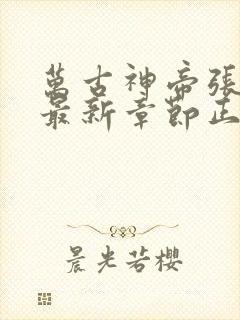 萬古神帝張
最新章節正
晨光若櫻